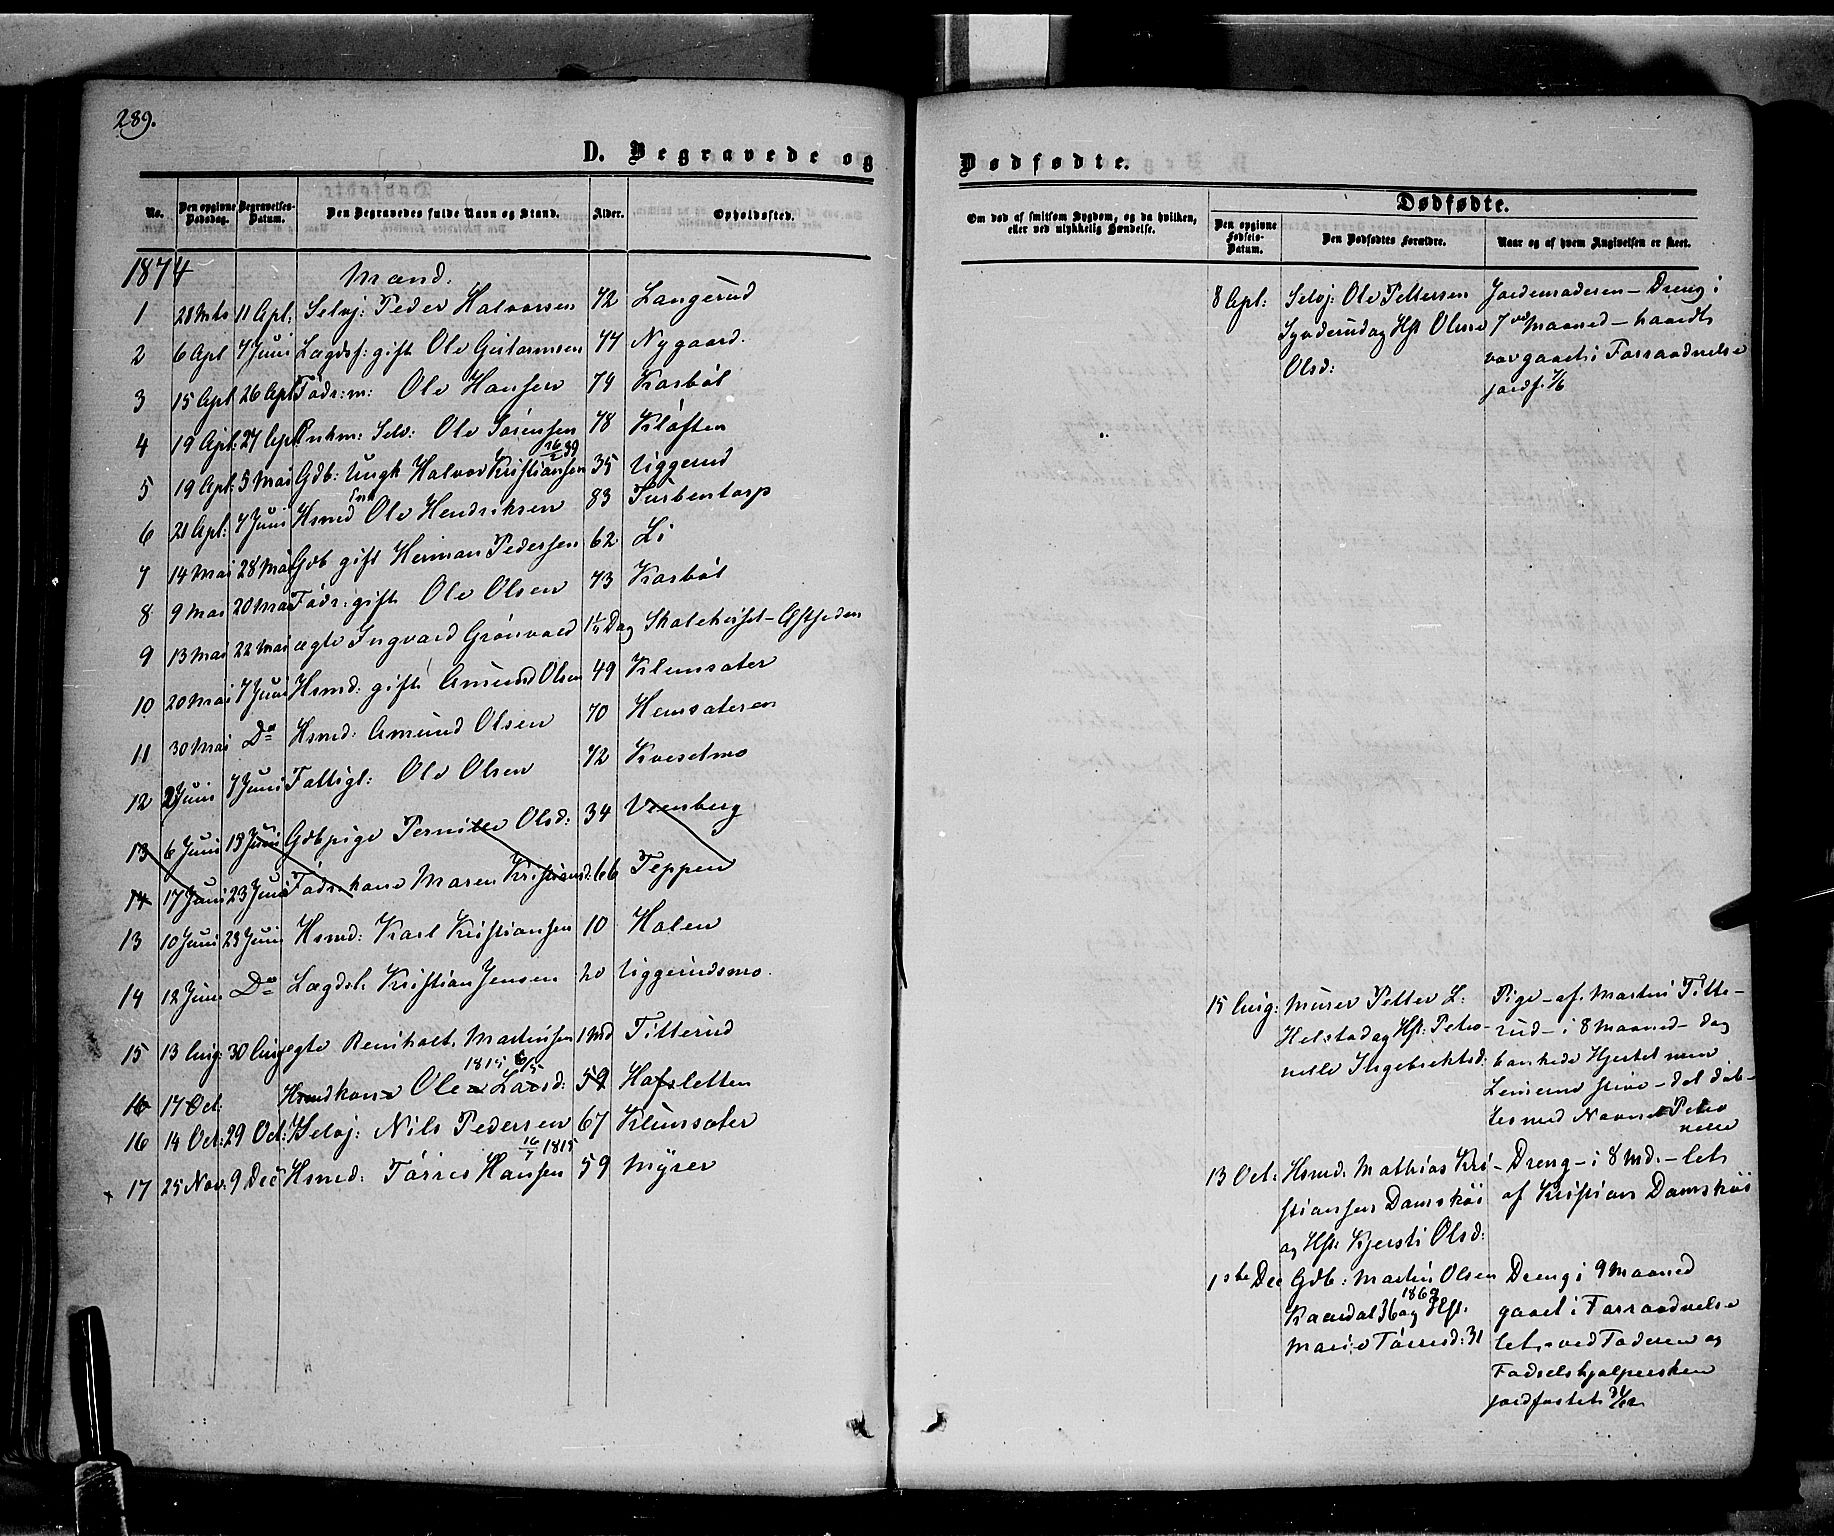 289.
D. Begravede og
No. Den opgivne Dødsdag. Begravelses-Datum. Den Begravedes fulde Navn og Stand. Alder. Opholdssted.
1874 Mænd.
1 28 Mts 11 Apl: Selvj: Peder Halvorsen 72 Langerud
2 6 Apl 7 Juni Lægdsl: gift Ole Gutormsen 77 Nygaard.
3 15 Apl 26 Apl Føds:m: Ole Hansen 74 Kasbøl
4 19 Apl: 27 Apl Enkm: Selv: Ole Sørensen 78 Kløften
5 19 Apl: 5 Mai Gdb: Ungk Halvor Kristiansen 26/2 39 35 Uggerud
6 21 Apl: 7 Juni Hsmd Enk Ole Hendriksen 83 Turbentorp
7 14 Mai 28 Mai Gdb gift Herman Pedersen 62 Li
8 9 Mai 20 Mai Føds: gift Ole Olsen 73 Kasbøl
9 13 Mai 22 Mai ægte Ingvard Grønvold Dag Skolehuset – Østsiden
10 20 Mai 7 Juni Hsmd: gift Amund Olsen 49 Klemsæter
11 30 Mai Do Hsmd: Amund Olsen 70 Hemsæteren
12 2 Juni 7 Juni Fattigl: Ole Olsen 72 Kveselmo
13 6 Juni 13 Juni Gdbpige Pernille Olsd: 34 Vrenberg
14 17 Juni 23 Juni Fødr:kone Maren Kristiansd: 66 Teppen
13 10 Juni 23 Juni Hsmd: Karl Kristiansen 10 Holen
14 12 Juni Do Lægdsl. Kristian Jensen 20 Uggerudsmo.
15 13 Aug: 30 Aug ægte Reinholt Martinsen 1 Md Titterud
16 17 Oct: Hsmdkone Olea Larsd: 1815 6/5 59 Hafsletten
16 14 Oct: 29 Oct: Selvj: Nils Pedersen 67 Klemsæter
17 25 Nov: 9 Dec Hsmd: Tørres Hansen 16/7 1815 59 Myrer
Dødfødte.
Om død af smitsom Sygdom, og da hvilken, eller ved ulykkelig Hændelse.
Dødfødte.
Den opgivne Fødsels-Datum. Den Dødfødtes Forældre. Naar og af hvem Angivelsen er skeet.
8 Apl: Selvj: Ole Pettersen Jordemoderen – Dreng i
Synderud og Hst Oline 7de Maaned – havde
Olsd: var gaaet i Forraadnelse
jordf. 7/6
15 Aug: Murer Petter L: Pige – af Martin Titte-
Helstad og Hst: Petro- rud – i 8 Maaned – dog
nelle Ingebrektsd: bankede Hjertet
– det døb-
tes med Navnet Petro
nelle
13 Oct: Hsmd: Mathias Kri- Dreng – i 8 Md. –
stiansen Damskøi af Kristian Damskøi
og Hst: Kjersti Olsd:
1ste Dec Gdb: Martin Olsen Dreng i 9 Maaned
Kaardal 36 og Hst: 1869 gaaet i Forraadnelse
Marie Tørresd: 31 ved Faderen og
Fødselshjælpersken
jordfæstet 31/12